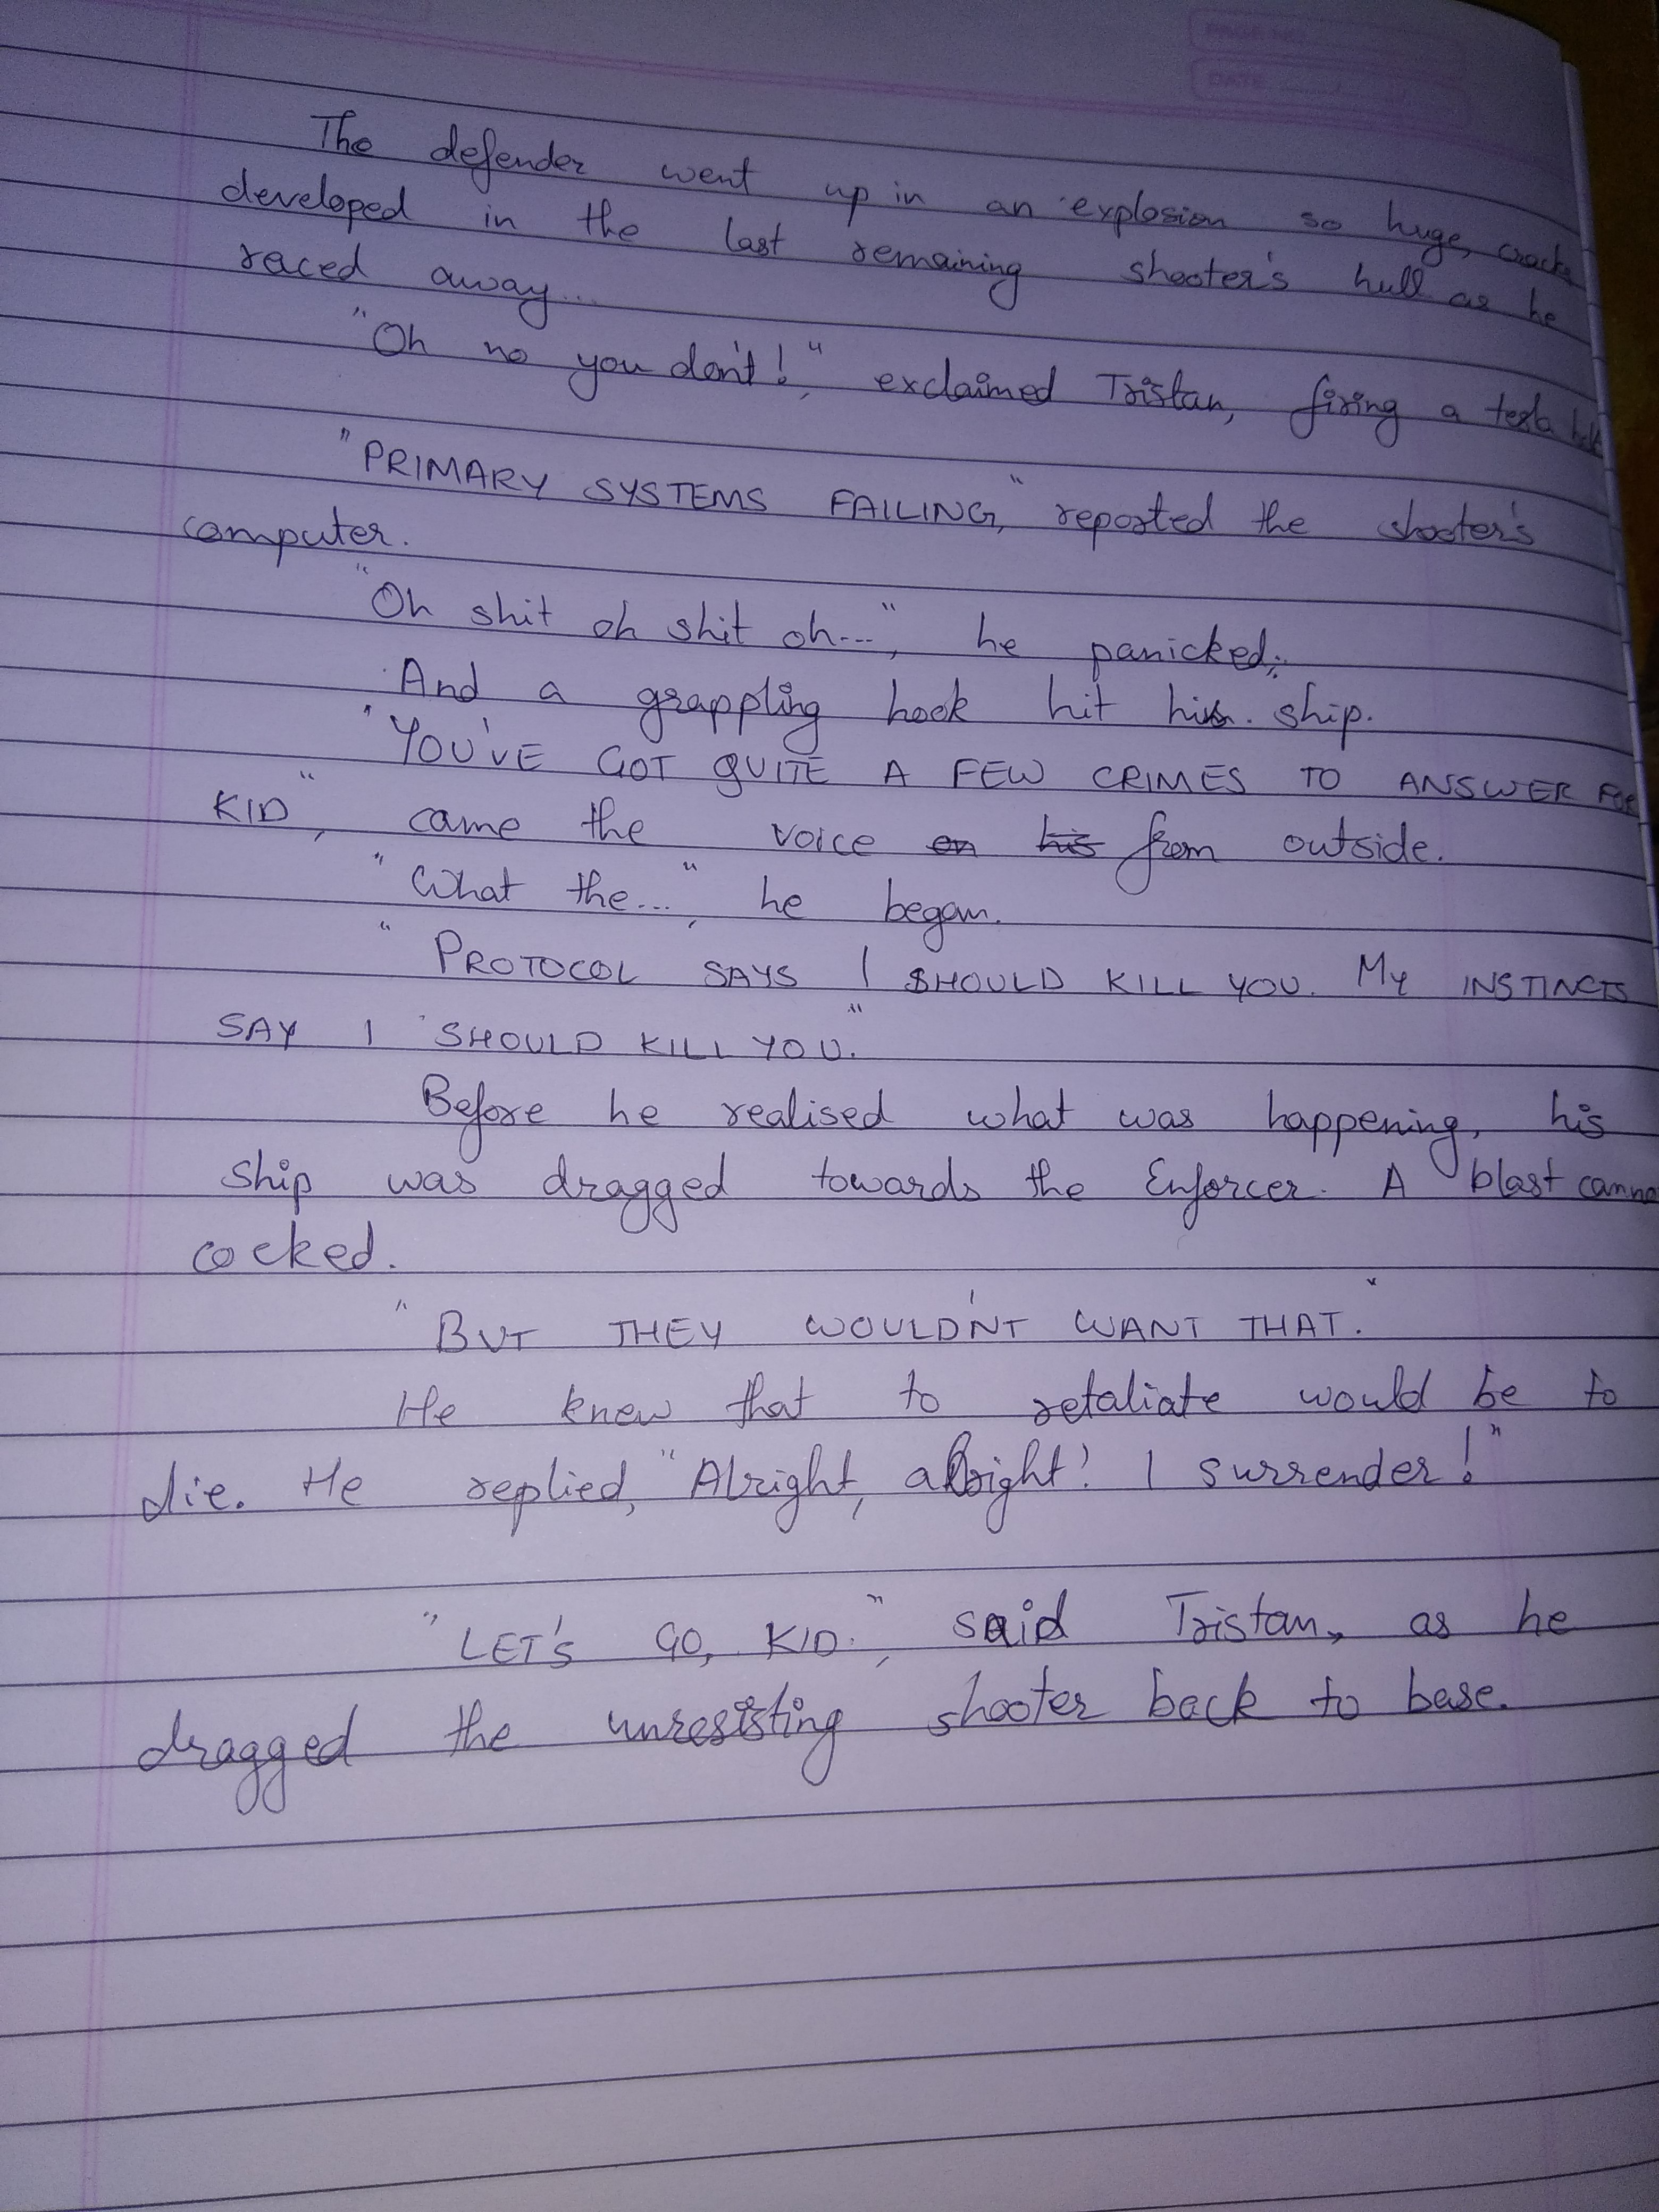 PAGE NO.
DATE
The defender went up in an explosion so huge, cracks
developed in the last remaining shooter's hull as he
raced away...
"Oh no you don't!", exclaimed Tristan, firing a tesla
"PRIMARY SYSTEMS FAILING," reported the shooter's
computer.
"Oh shit oh shit oh...", he panicked.
And a grappling hook hit his ship.
"YOU'VE GOT QUITE A FEW CRIMES TO ANSWER FOR
KID", came the voice on his from outside.
"What the...", he began.
"PROTOCOL SAYS I SHOULD KILL YOU. MY INSTINCTS
SAY I SHOULD KILL YOU."
Before he realised what was happening, his
ship was dragged towards the Enforcer. A blast
cocked.
"BUT THEY WOULDN'T WANT THAT."
He knew that to retaliate would be to
die. He replied, "Alright, alright! I surrender!"
"LET'S GO, KID.", said Tristan, as he
dragged the unresisting shooter back to base.